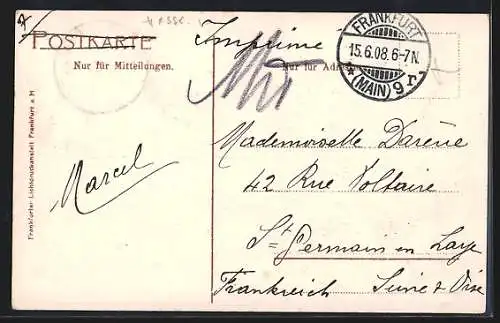 POSTKARTE
Nur für Mitteilungen.
Imprimé
Nur für Adresse
FRANKFURT
15.6.08.6-7N.
* (MAIN) 9 r
Marcel
Mademoiselle Darène
42 Rue Voltaire
St Germain en Laye
Frankreich Seine & Oise
Frankfurter Lichtdruckanstalt Frankfurt a. M